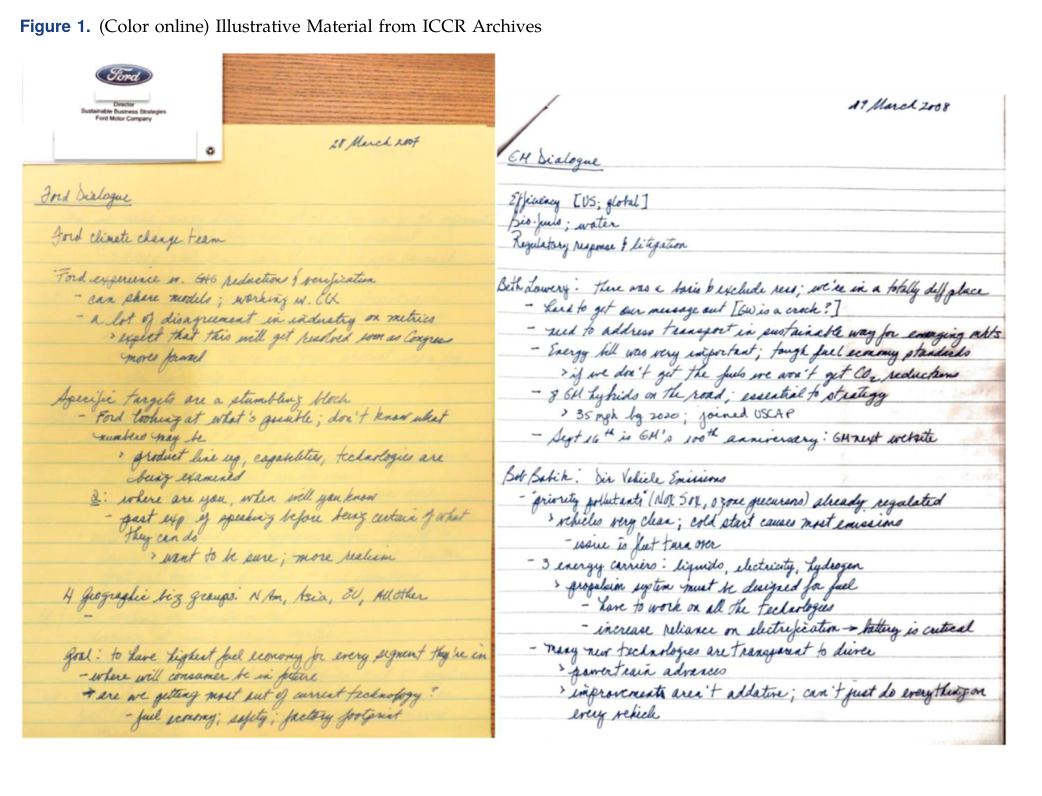 Figure 1. (Color online) Illustrative Material from ICCR Archives
Ford
Director
Sustainable Business Strategies
Ford Motor Company
28 March 2007
Ford Dialogue
Ford climate change team
Ford experience w. GHG reductions & verification
- can share models; working w. CCX
- a lot of disagreement in industry on metrics
> expect that this will get resolved soon as Congress
moves forward
Specific targets are a stumbling block
- Ford looking at what's possible; don't know what
numbers may be
> product line up, capabilities, technologies are
being examined
Q: where are you, when will you know
- past exp of speaking before being certain of what
they can do
> want to be sure; more realism
4 Geographic biz groups: N Am, Asia, EU, All other
-
Goal: to have highest fuel economy for every segment they're in
- where will consumer be in future
→ are we getting most out of current technology?
- fuel economy; safety; factory footprint
19 March 2008
GM Dialogue
Efficiency [US; global]
Bio-fuels; water
Regulatory response & litigation
Beth Lowery: there was a basis to exclude reso; we're in a totally diff place
- hard to get our message out [GW is a crock?]
- need to address transport in sustainable way for emerging mkts
- Energy bill was very important; tough fuel economy standards
> if we don't get the fuels we won't get CO2 reductions
- 8 GM hybrids on the road; essential to strategy
> 35 mpg by 2020; joined USCAP
- Sept 16th is GM's 100th anniversary: GMnext website
Bob Babik: Dir Vehicle Emissions
- "priority pollutants" (NOx SOx, ozone precursors) already regulated
> vehicles very clean; cold start causes most emissions
- issue is fleet turn over
- 3 energy carriers: liquids, electricity, hydrogen
> propulsion system must be designed for fuel
- have to work on all the technologies
- increase reliance on electrification → battery is critical
- many new technologies are transparent to driver
> powertrain advances
> improvements aren't addative; can't just do everything on
every vehicle